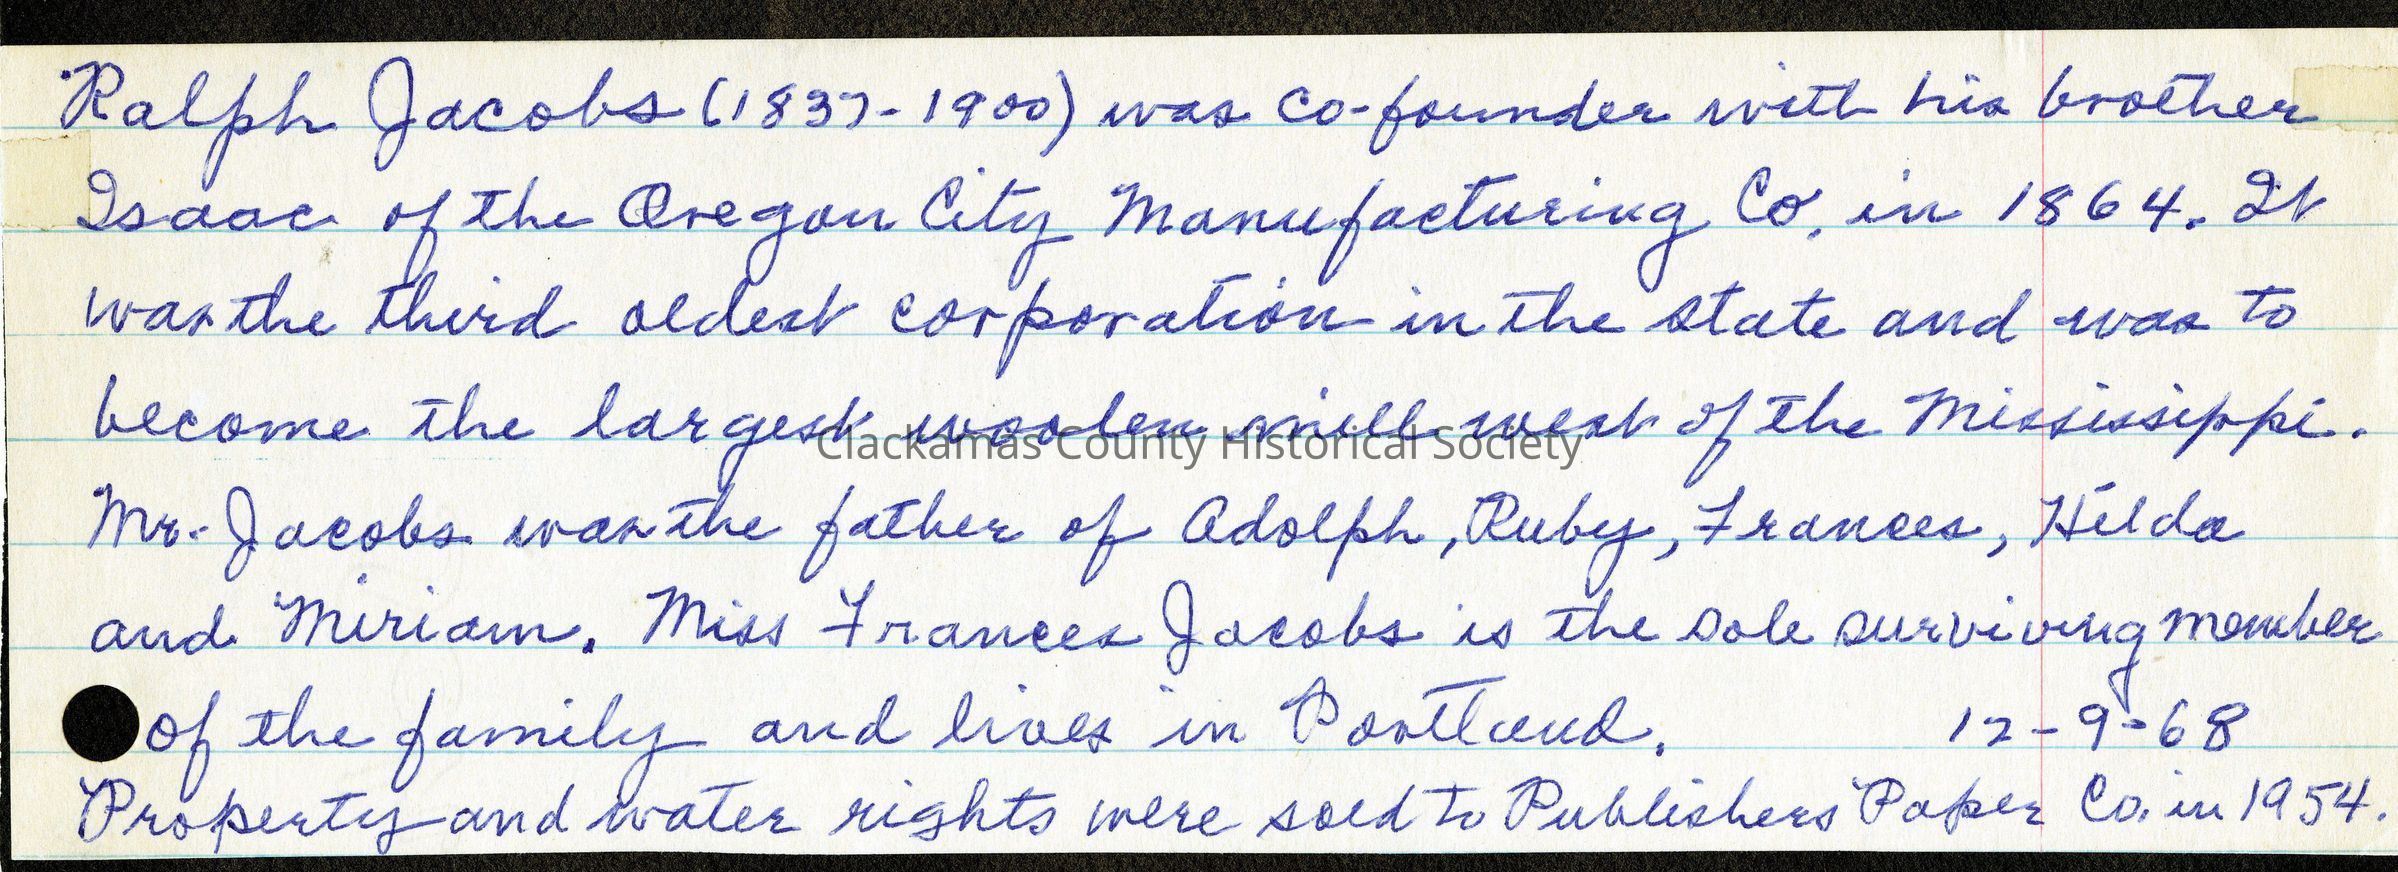 Ralph Jacobs (1837-1900) was co-founder with his brother
Isaac of the Oregon City Manufacturing Co. in 1864. It
was the third oldest corporation in the state and was to
become the largest woolen mill west of the Mississippi.
Clackamas County Historical Society
Mr. Jacobs was the father of Adolph, Ruby, Frances, Hilda
and Miriam. Miss Frances Jacobs is the sole surviving member
of the family and lives in Portland. 12-9-68
Property and water rights were sold to Publishers Paper Co. in 1954.